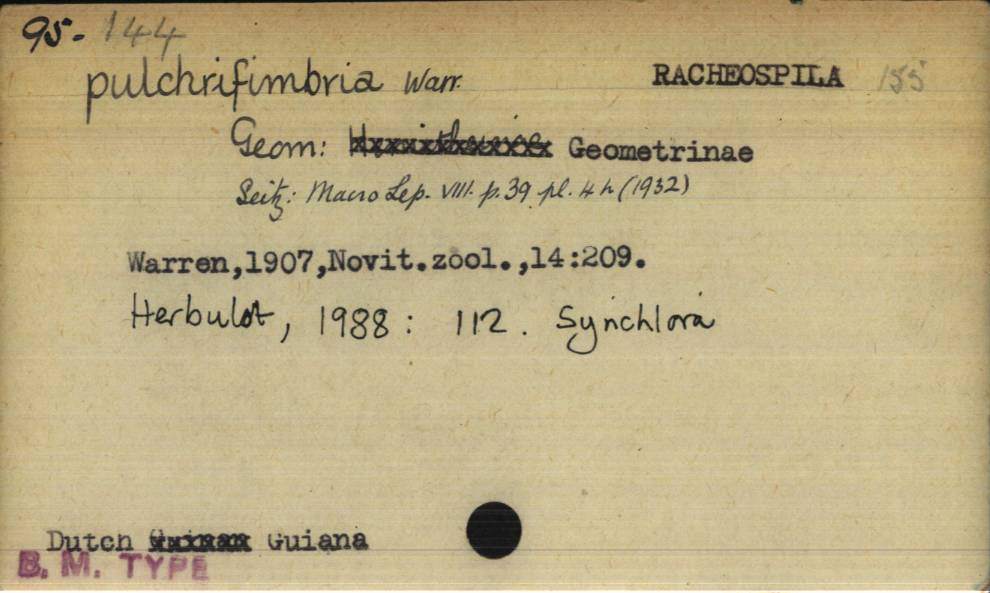 95-144
pulchrifimbria Warr. RACHEOSPILA 155
Geom: Geometrinae
Seitz: Macro Lep. VIII. p.39 pl. 4 h (1932)
Warren,1907,Novit.zool.,14:209.
Herbulot, 1988: 112. Synchlora
Dutch Guiana
B. M. TYPE